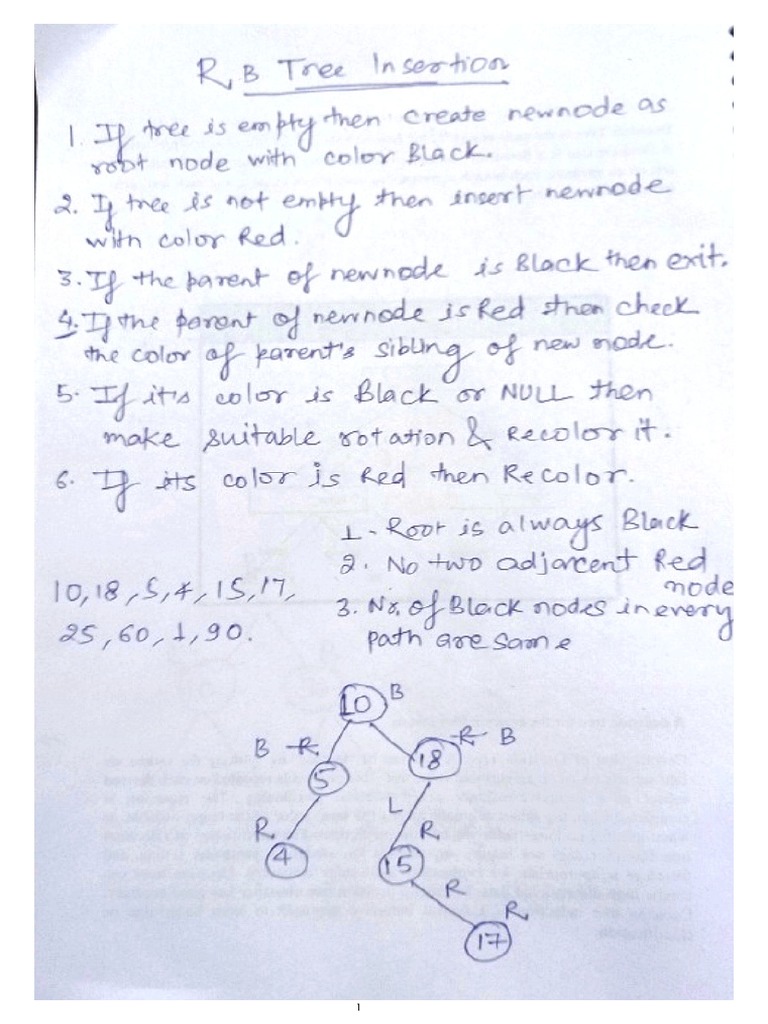 R B Tree Insertion
1. If tree is empty then create newnode as
root node with color Black.
2. If tree is not empty then insert newnode
with color Red.
3. If the parent of newnode is Black then exit.
4. If the parent of newnode is Red then check
the color of parent's sibling of new node.
5. If it's color is Black or NULL then
make suitable rotation & Recolor it.
6. If its color is Red then Recolor.
1 - Root is always Black
2. No two adjancent Red
node
10, 18, 5, 4, 15, 17,
3. No. of Black nodes in every
25, 60, 1, 90.
path are same
10 B
B R 5
18 R B
L
R 4
15 R
R
17 R
1